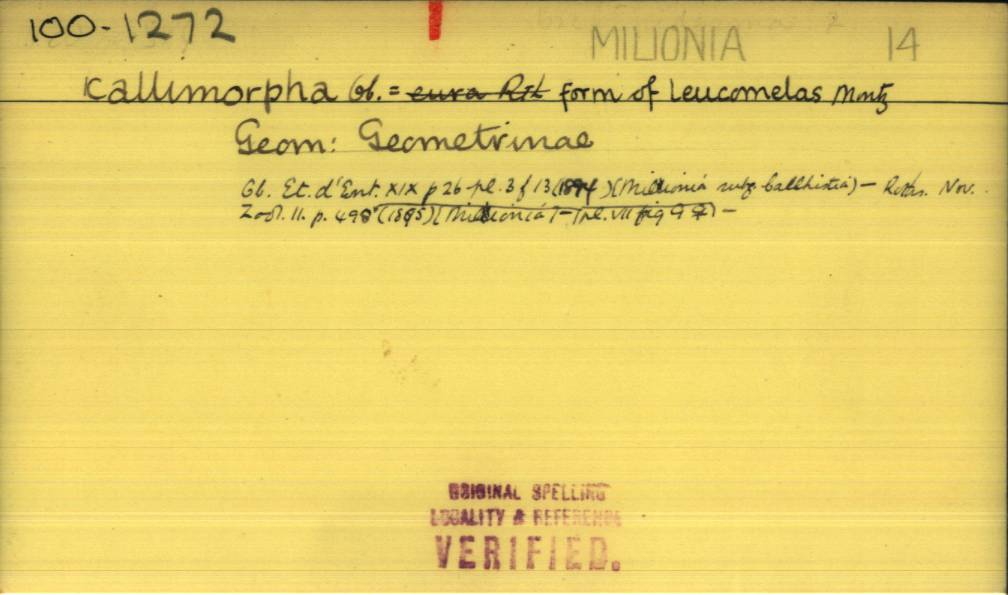 100-1272
MILIONIA 14
Kallimorpha Ob. = eura Rth form of Leucomelas Montz
Geom: Geometrinae
Ob. Et. d'Ent. XIX p 26 pl. 3 f 13 (1894) (Milionia — Roths. Nov.
Zool. II. p. 498 (1895) (Milionia) — (pl. VII fig 9 ♀) —
ORIGINAL SPELLING
LOCALITY & REFERENCE
VERIFIED.